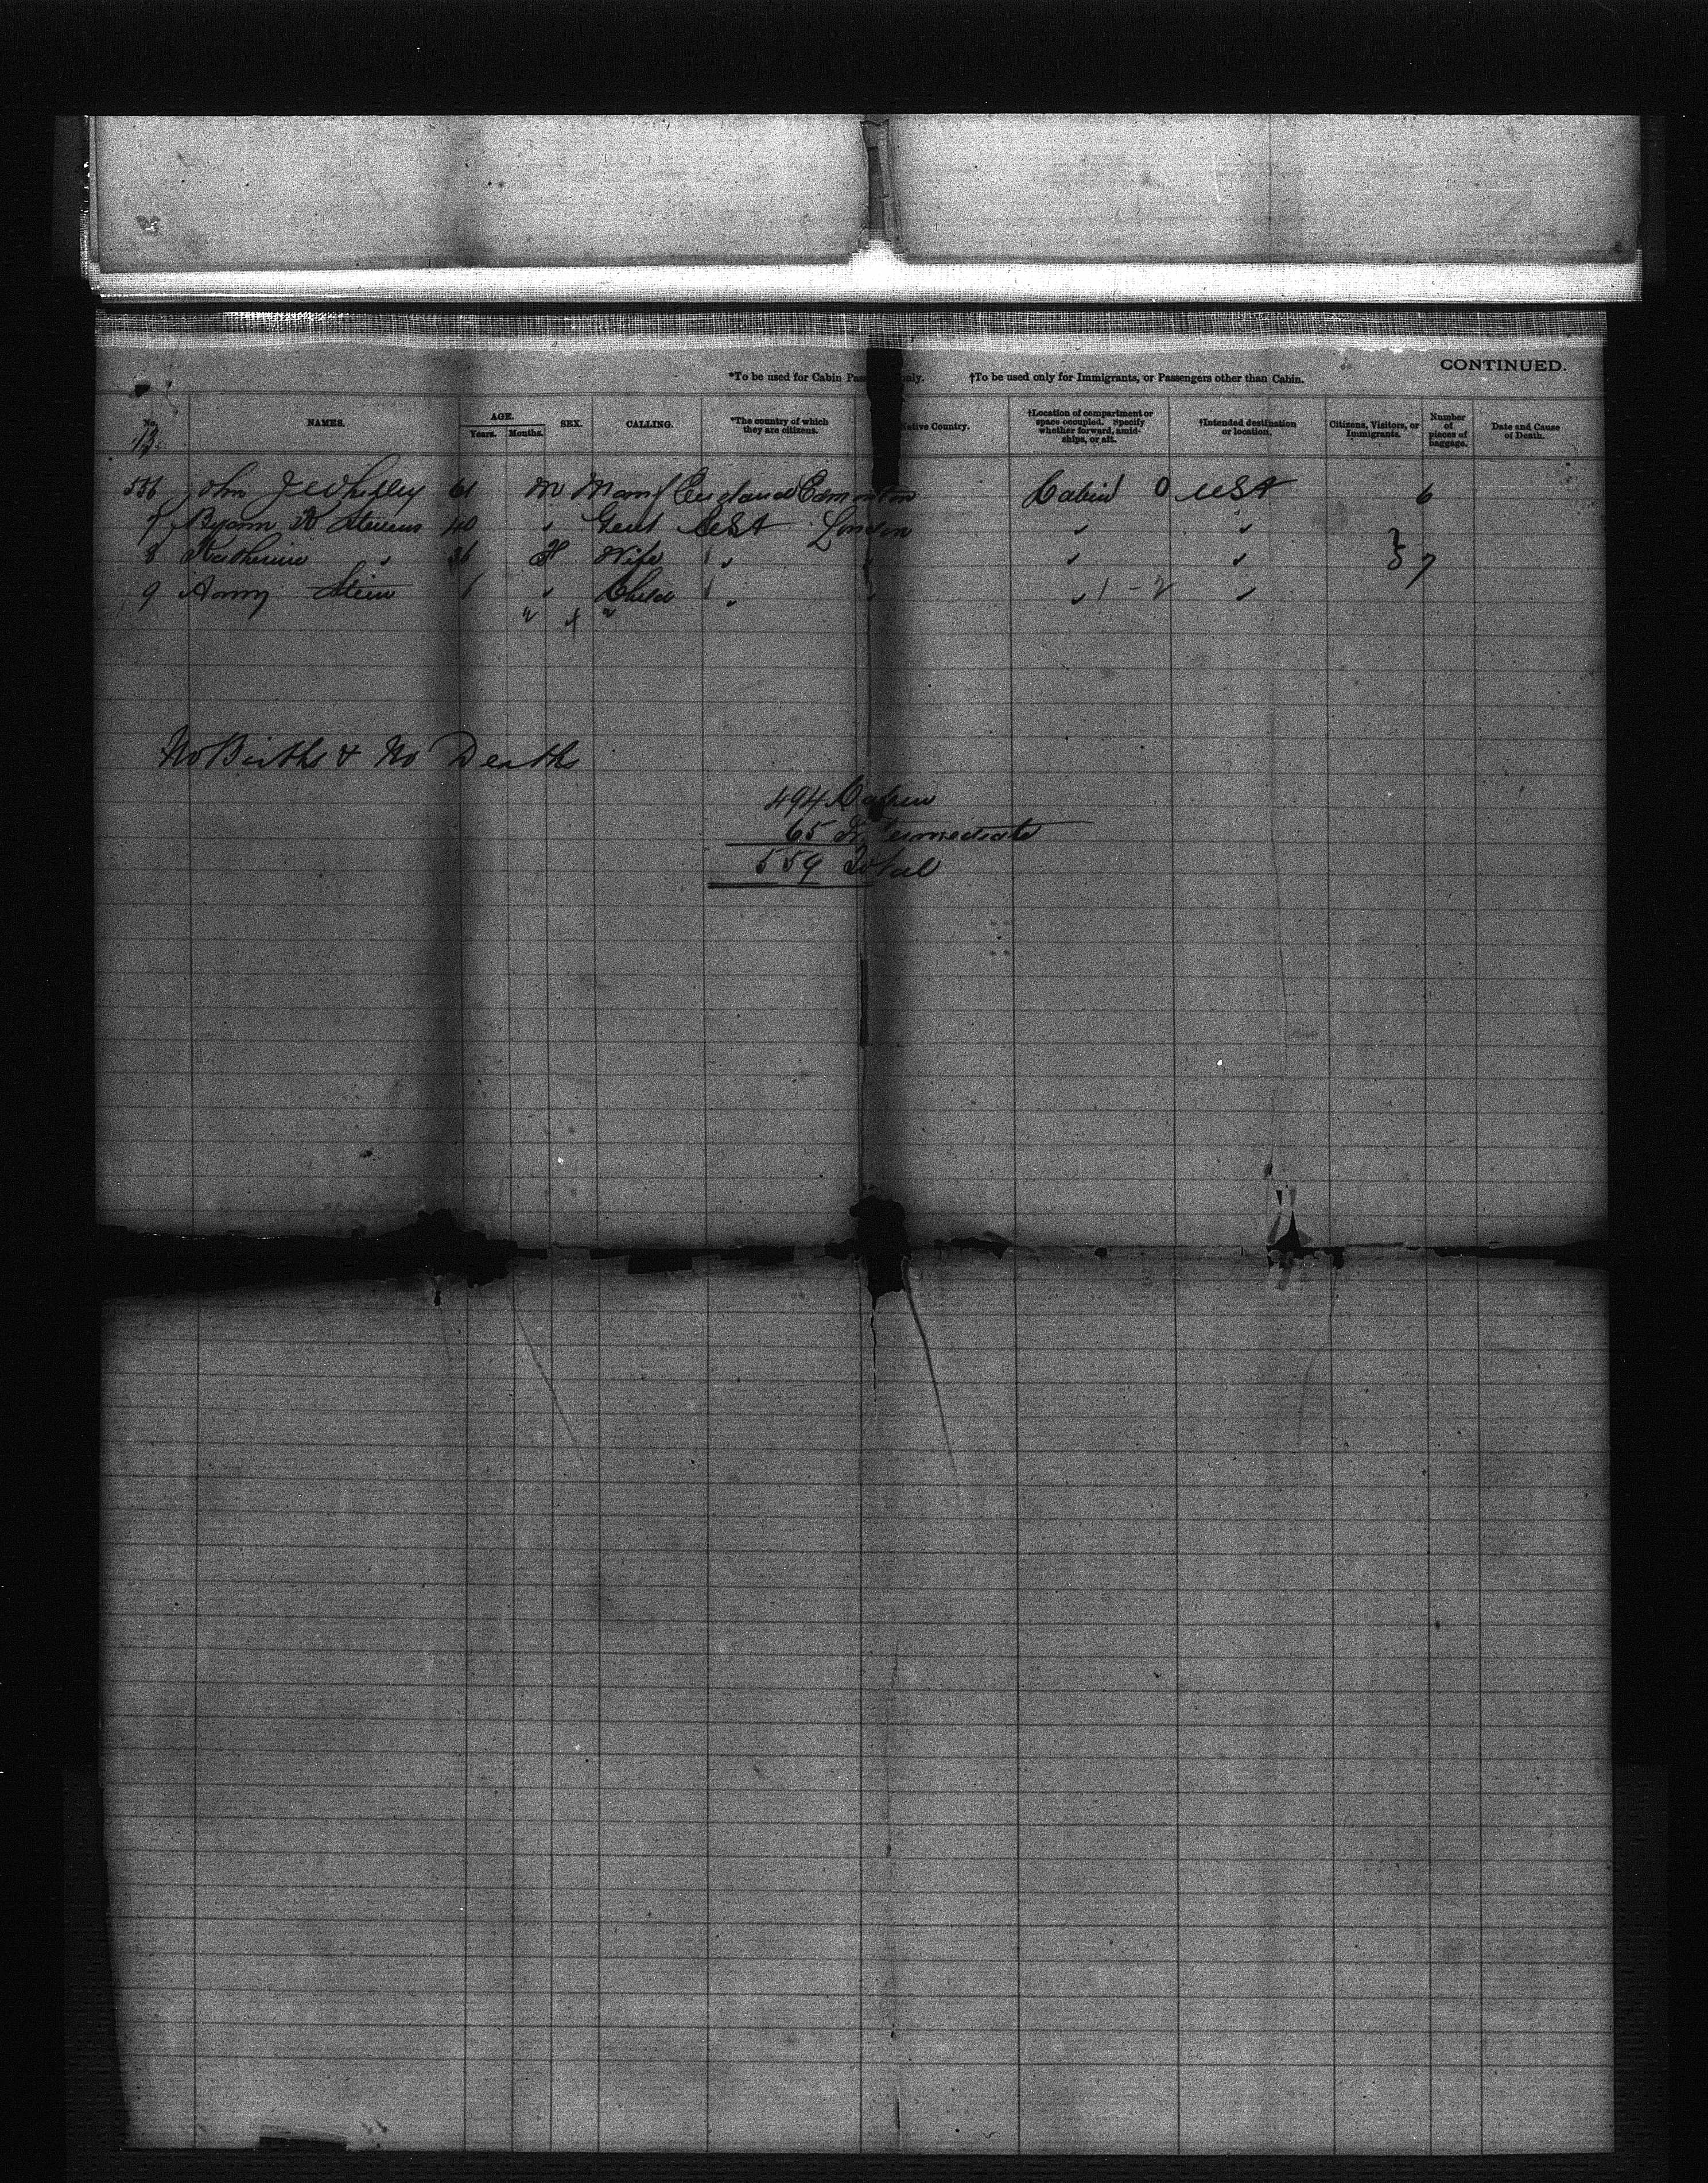 CONTINUED.
*To be used for Cabin Pas only. †To be used only for Immigrants, or Passengers other than Cabin.
No. NAMES. AGE. Years. Months. SEX. CALLING. *The country of which they are citizens. Native Country. †Location of compartment or space occupied. Specify whether forward, amidships, or aft. †Intended destination or location. Citizens, Visitors, or Immigrants. Number of pieces of baggage. Date and Cause of Death.
13
556 John J 61 M Manf England Edmonton Cabin 0 USA 6
7 Byam K Stevens 40 " Gent USA London " "
8 Katherine " 36 F Wife " " " " } 57
9 Amy Stein 1 " Child " " " 1-2 "
" x "
No Births & No Deaths
494 Cabin
65 Intermediate
559 Total